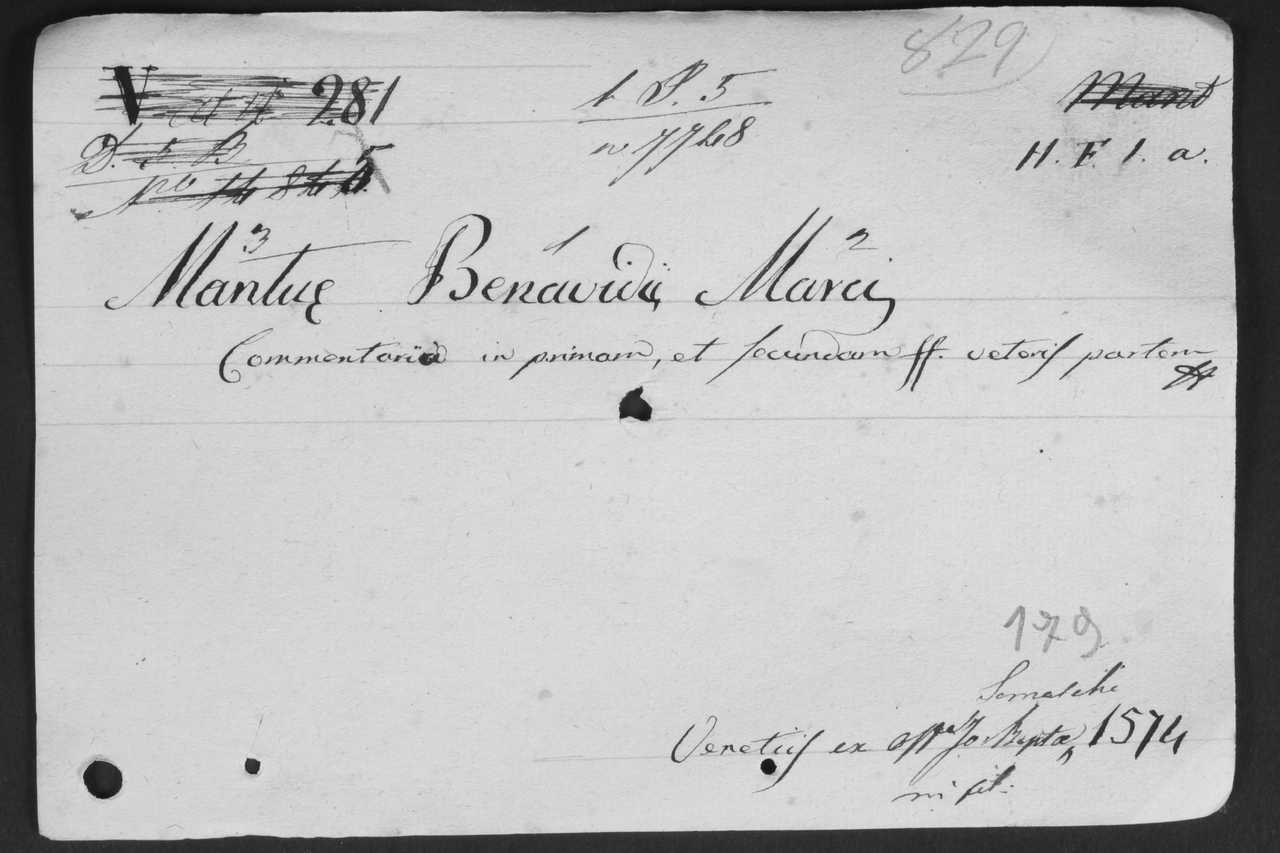 829
V 281
1 P. 5
D. 5. B
n 7748
H. F. 1. a.
3 1 2
Mantuę Benavidij Marci
Commentaria in primam, et secundam ff. veteris partem
179
Somaschi
Venetiis ex offna Jo: Bapta, 1574
in fol: